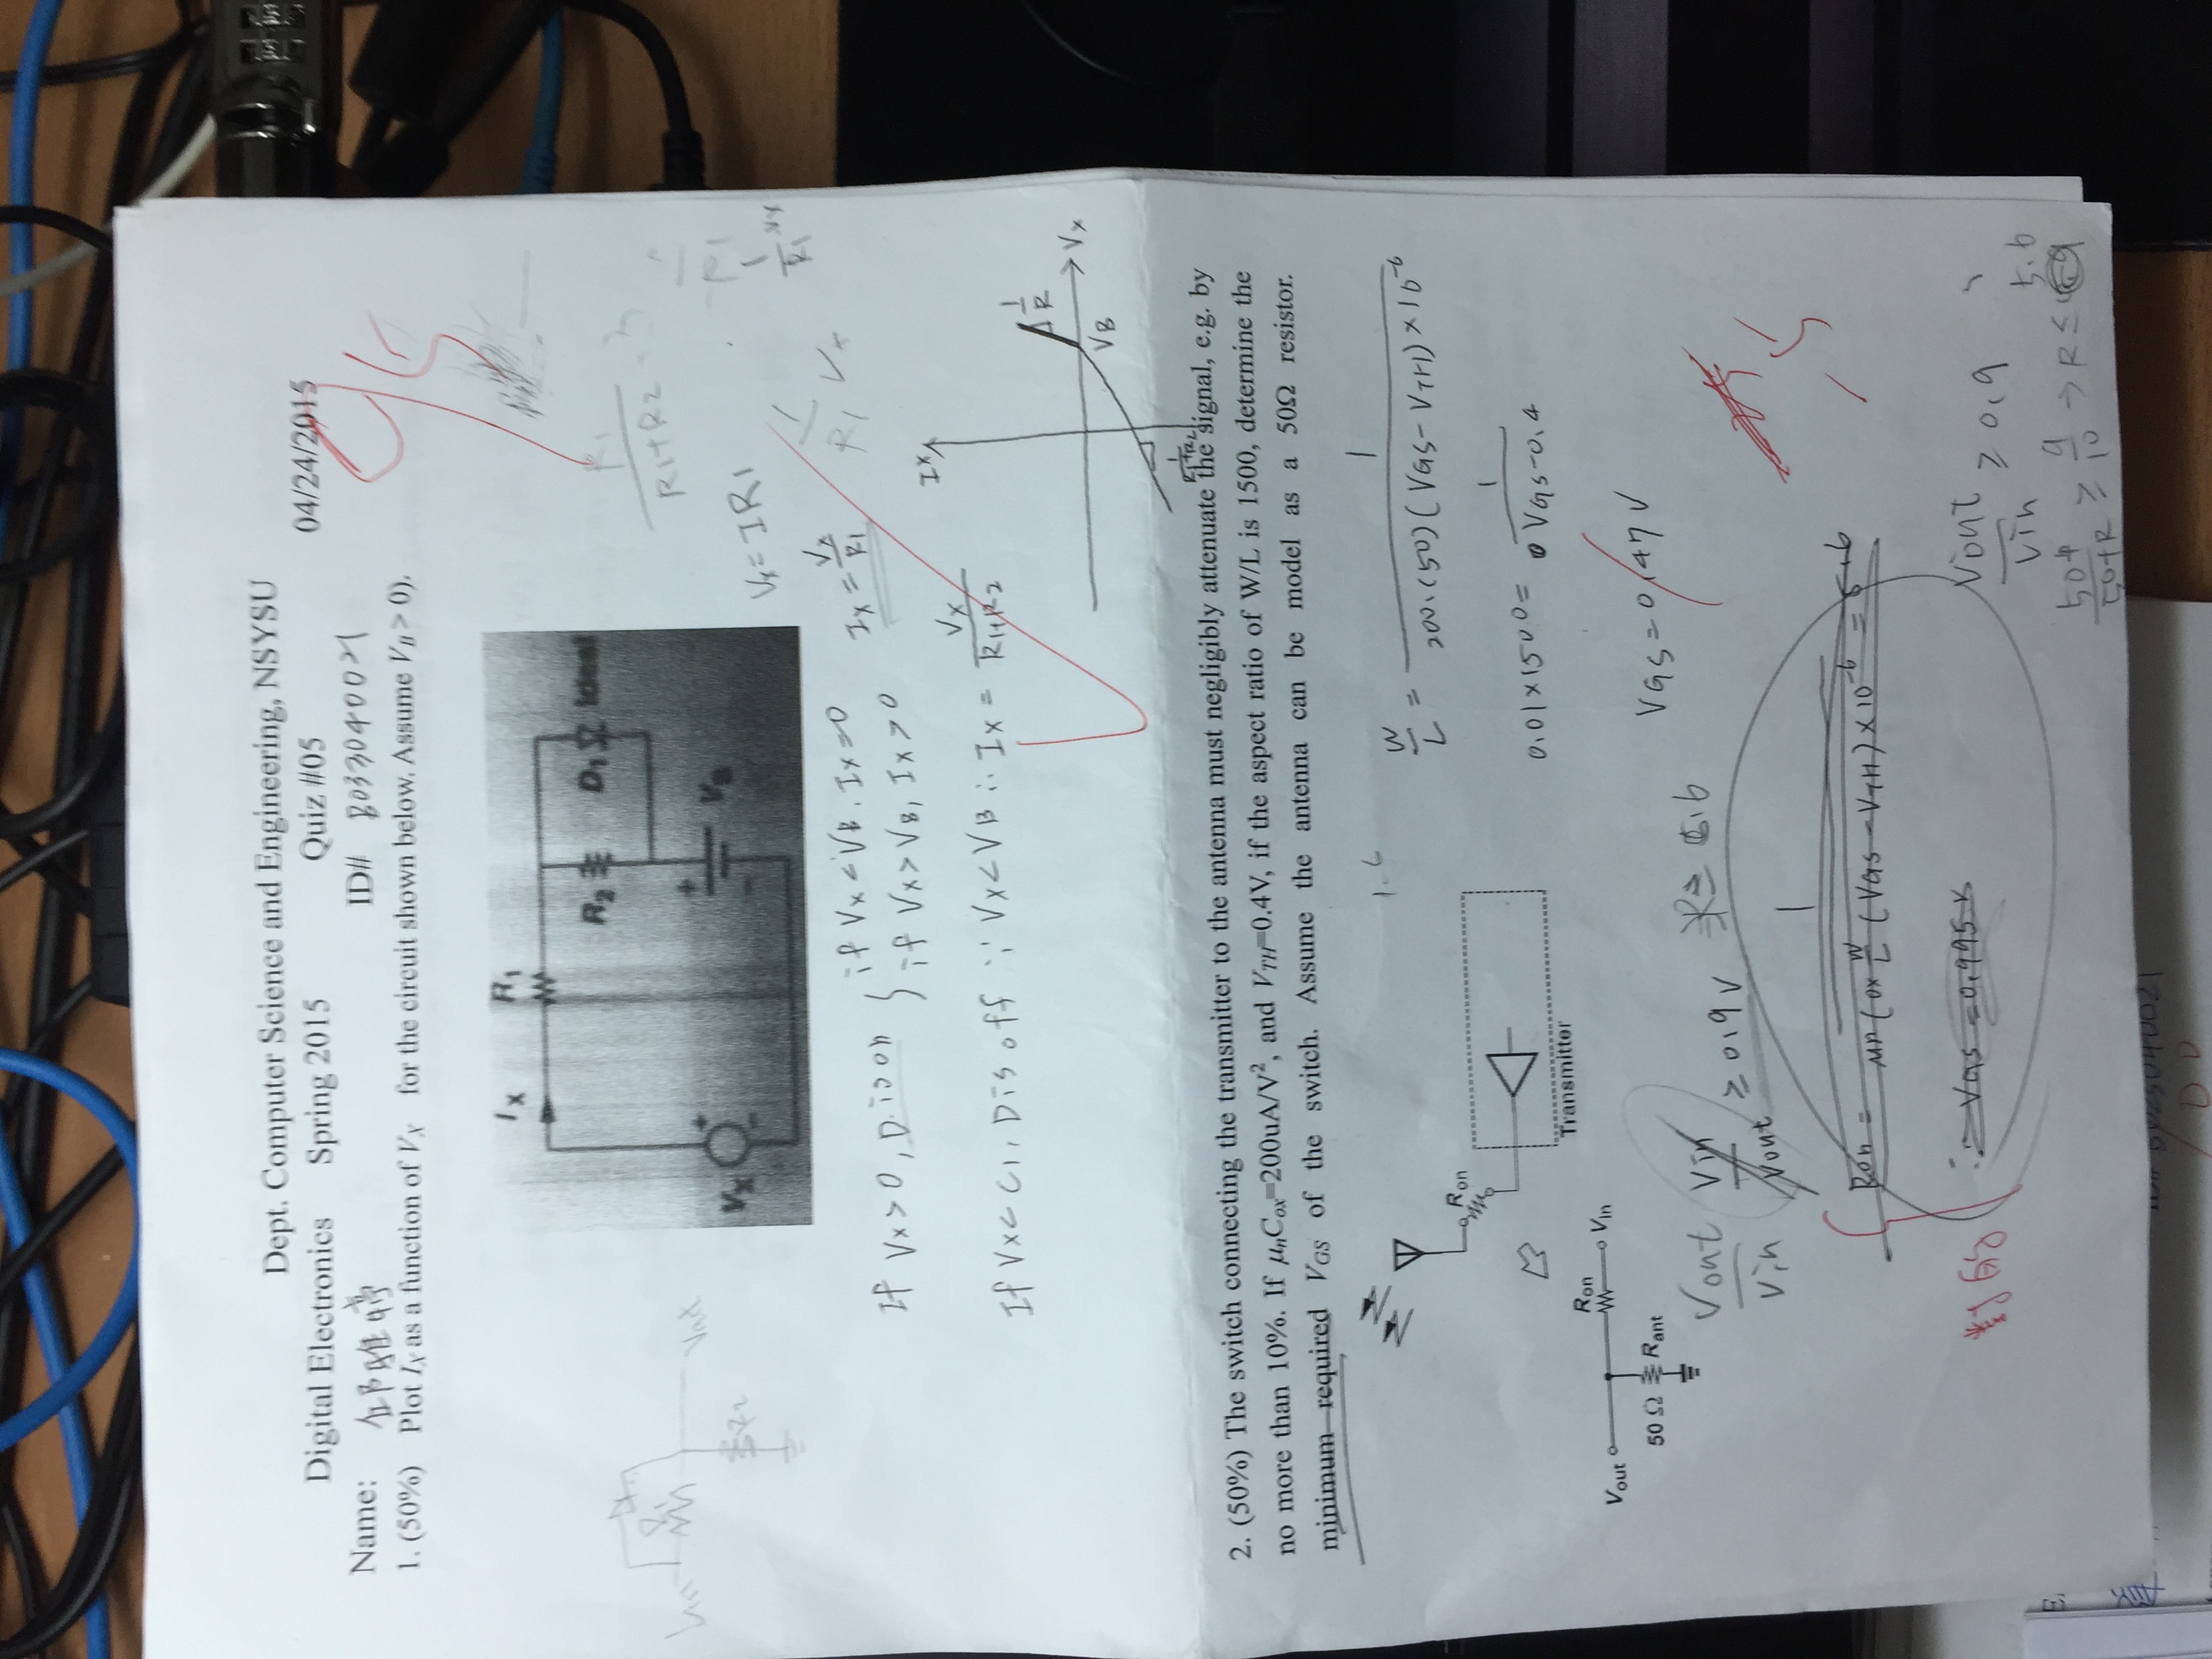 Dept. Computer Science and Engineering, NSYSU
Digital Electronics Spring 2015 Quiz #05 04/24/2015
Name: 邱雅婷 ID# B033040021
95
1. (50%) Plot IX as a function of VX for the circuit shown below. Assume VB > 0).
IX R1
R2 D1 Ideal
VX + - + - VB
R1
R1+R2
Vin R1 Vout
R2
VX = IR1
1/R1
1/R1 VX
If VX > 0, D is on { if VX < VB, IX = 0
if VX > VB, IX > 0
IX = VX/R1
If VX < 0, D is off ∵ VX < VB ∴ IX = VX/(R1+R2)
IX
1/R
VX
VB
1/(R1+R2)
2. (50%) The switch connecting the transmitter to the antenna must negligibly attenuate the signal, e.g. by
no more than 10%. If μnCox=200uA/V², and VTH=0.4V, if the aspect ratio of W/L is 1500, determine the
minimum required VGS of the switch. Assume the antenna can be model as a 50Ω resistor.
1.6
W/L = 1/(200·(50)(VGS-VTH)×10^-6
Ron
0.01×1500 = 1/(VGS-0.4
Transmitter
Ron
Vout Vin
50 Ω Rant
VGS = 0.47 V
Vout/Vin Vin/Vout ≥ 0.9 V R ≥ 5.6
-5
Ron = 1/(μn Cox W/L (VGS - VTH) × 10^-6 = 5.6
∴ VGS = 0.995 V
Vout/Vin ≥ 0.9
5.6
50/(50+R) ≥ 9/10 → R ≤